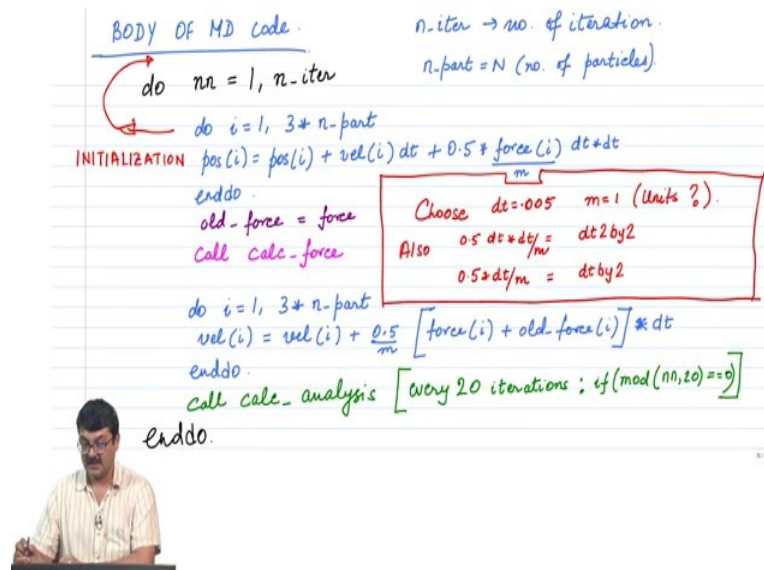 BODY OF MD code.
n-iter → no. of iteration.
n-part = N (no. of particles).
do nn = 1, n-iter
do i=1, 3* n-part
INITIALIZATION
pos(i) = pos(i) + vel(i) dt + 0.5 * force(i)/m dt*dt
enddo.
old-force = force
call calc-force
Choose dt=.005 m=1 (Units ?).
Also 0.5 dt*dt/m = dt2by2
0.5*dt/m = dtby2
do i=1, 3* n-part
vel(i) = vel(i) + 0.5/m [force(i) + old-force(i)] * dt
enddo.
call calc-analysis [every 20 iterations : if(mod(nn,20)==0)]
enddo.